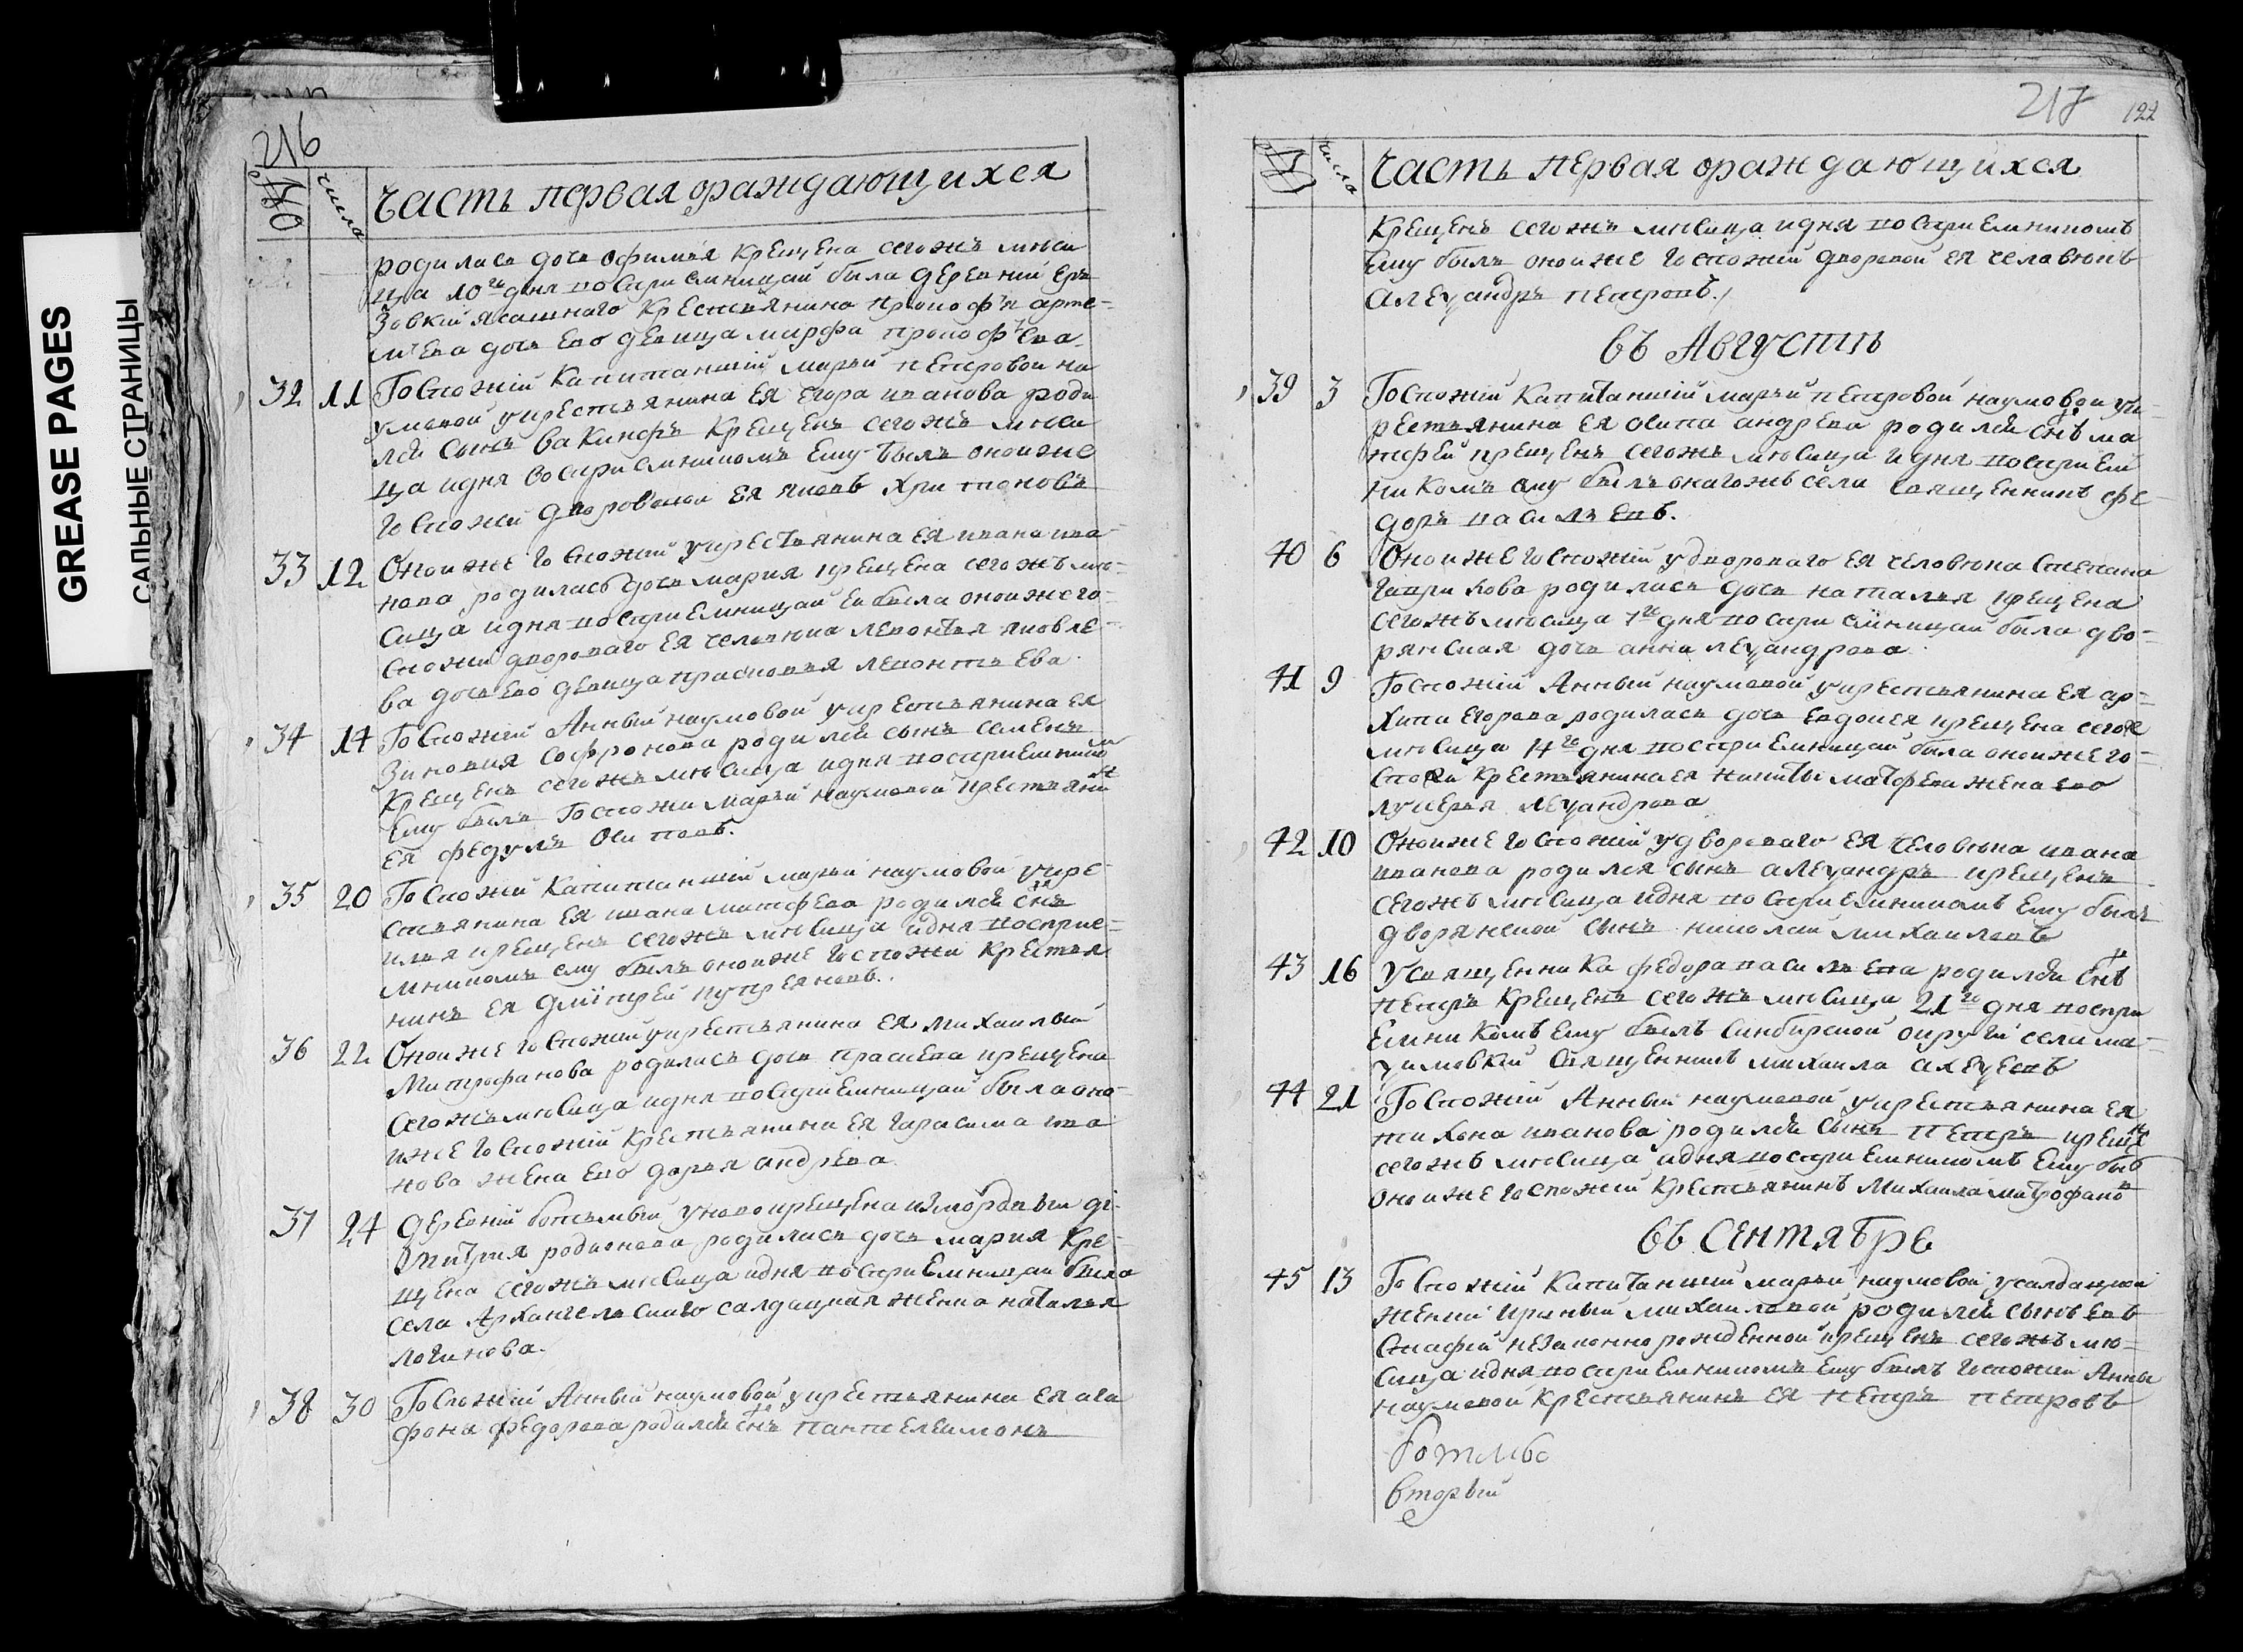 GREASE PAGES
САЛЬНЫЕ СТРАНИЦЫ
216
№ числа Часть первая ораждающихся
родилась дочь офимья крещена сегожъ меся
ца 10го дня восприемницай была деревни
ясашнаго крестьянина прокофья арте-
мьева дочь ево девица марфа прокофьева
32 11 Госпожи капитанши марьи петровой на
умовой укрестьянина ея егора иванова роди
лси сынъ вакинфъ крещенъ сегожъ меся
ца идня восприемникомъ ему былъ оноиже
госпожи дворовой ея яковъ харитоновъ
33 12 Оноиже госпожи укрестьянина ея ивана ива
нова родилась дочь мария крещена сегожъ ме-
сяца идня восприемницай ей была оноиже го-
спожи двороваго ея человека левонтья яковле-
ва дочь ево девица прасковья левонтьева
34 14 Госпожи Анны наумовой укрестьянина ея
зиновия софронова родилси сынъ семенъ
крещенъ сегожъ месяца идня восприемником
ему былъ госпожи марьи наумовой крестьянин
ея федулъ осиповъ.
35 20 Госпожи капитанши марьи наумовой укре-
стьянина ея ивана матфева родилси снъ
илья крещенъ сегожъ месяца идня восприе-
мникомъ ему былъ оноиже госпожи крестья
нинъ ея дмитрей куприяновъ.
36 22 Оноиже госпожи укрестьянина ея михаилы
митрофанова родилась дочь праскева крещена
сегожъ месяца идня восприемницай была оно-
иже госпожи крестьянина ея гарасима ива
нова жена ево дарья андрева
37 24 деревни ботьмы уновокрещена измордвы ди-
митрия родионова родилась дочь мария кре-
щена сегожъ месяца идня восприемницаи была
села Архангельскаго салдацкая женка наталья
логинова.
38 30 Госпожи Анны наумовой укрестьянина ея ага
фона федорова родилси снъ пантелеимонъ
217 122
№ числа Часть первая ораждающихся
крещенъ сегожъ месяца идня восприемникомъ
ему былъ оноиже госпожи дворовой ея человекъ
Александръ петровъ.
въ Августе
39 3 Госпожи капитанши марьи петровой наумовой ук-
рестьянина ея осипа андрева родилси снъ ма
тфей крещенъ сегожъ месяца идня восприем
никомъ ему былъ онагожъ села священникъ фе-
доръ васильевъ.
40 6 Оноиже госпожи удвороваго ея человека степана
гаврилова родилась дочь наталья крещена
сегожъ месяца 7го дня восприемницаи была дво-
рянская дочь анна александрова
41 9 Госпожи Анны наумовой укрестьянина ея ар-
хипа егорова родилась дочь евдокея крещена сегож
месяца 14го дня восприемницаи была оноиже го-
спожи крестьянина ея никиты матфева жена ево
лукерья александрова
42 10 Оноиже госпожи удвороваго ея человека ивана
иванова родился сынъ александръ крещенъ
сегожъ месяца идня восприемникомъ ему былъ
дворянской сынъ николай михаиловъ
43 16 Усвященника федора васильева родилси снъ
петръ крещенъ сегожъ месяца 21го дня воспри
емникомъ ему былъ Синбирской округи села ма-
священникъ михаила алексевъ
44 21 Госпожи Анны наумовой укрестьянина ея
тихона иванова родилси сынъ петръ крещен
сегожъ месяца идня восприемникомъ ему былъ
оноиже госпожи крестьянинъ михаила митрофанов
въ Сентябре
45 13 Госпожи капитанши марьи наумовой усалдацкой
женки ирины михаиловой родилси сынъ ев
стафей незаконнорожденной крещенъ сегожъ ме-
сяца идня восприемникомъ ему былъ госпожи Анны
наумовой крестьянинъ ея петръ петровъ
вторый